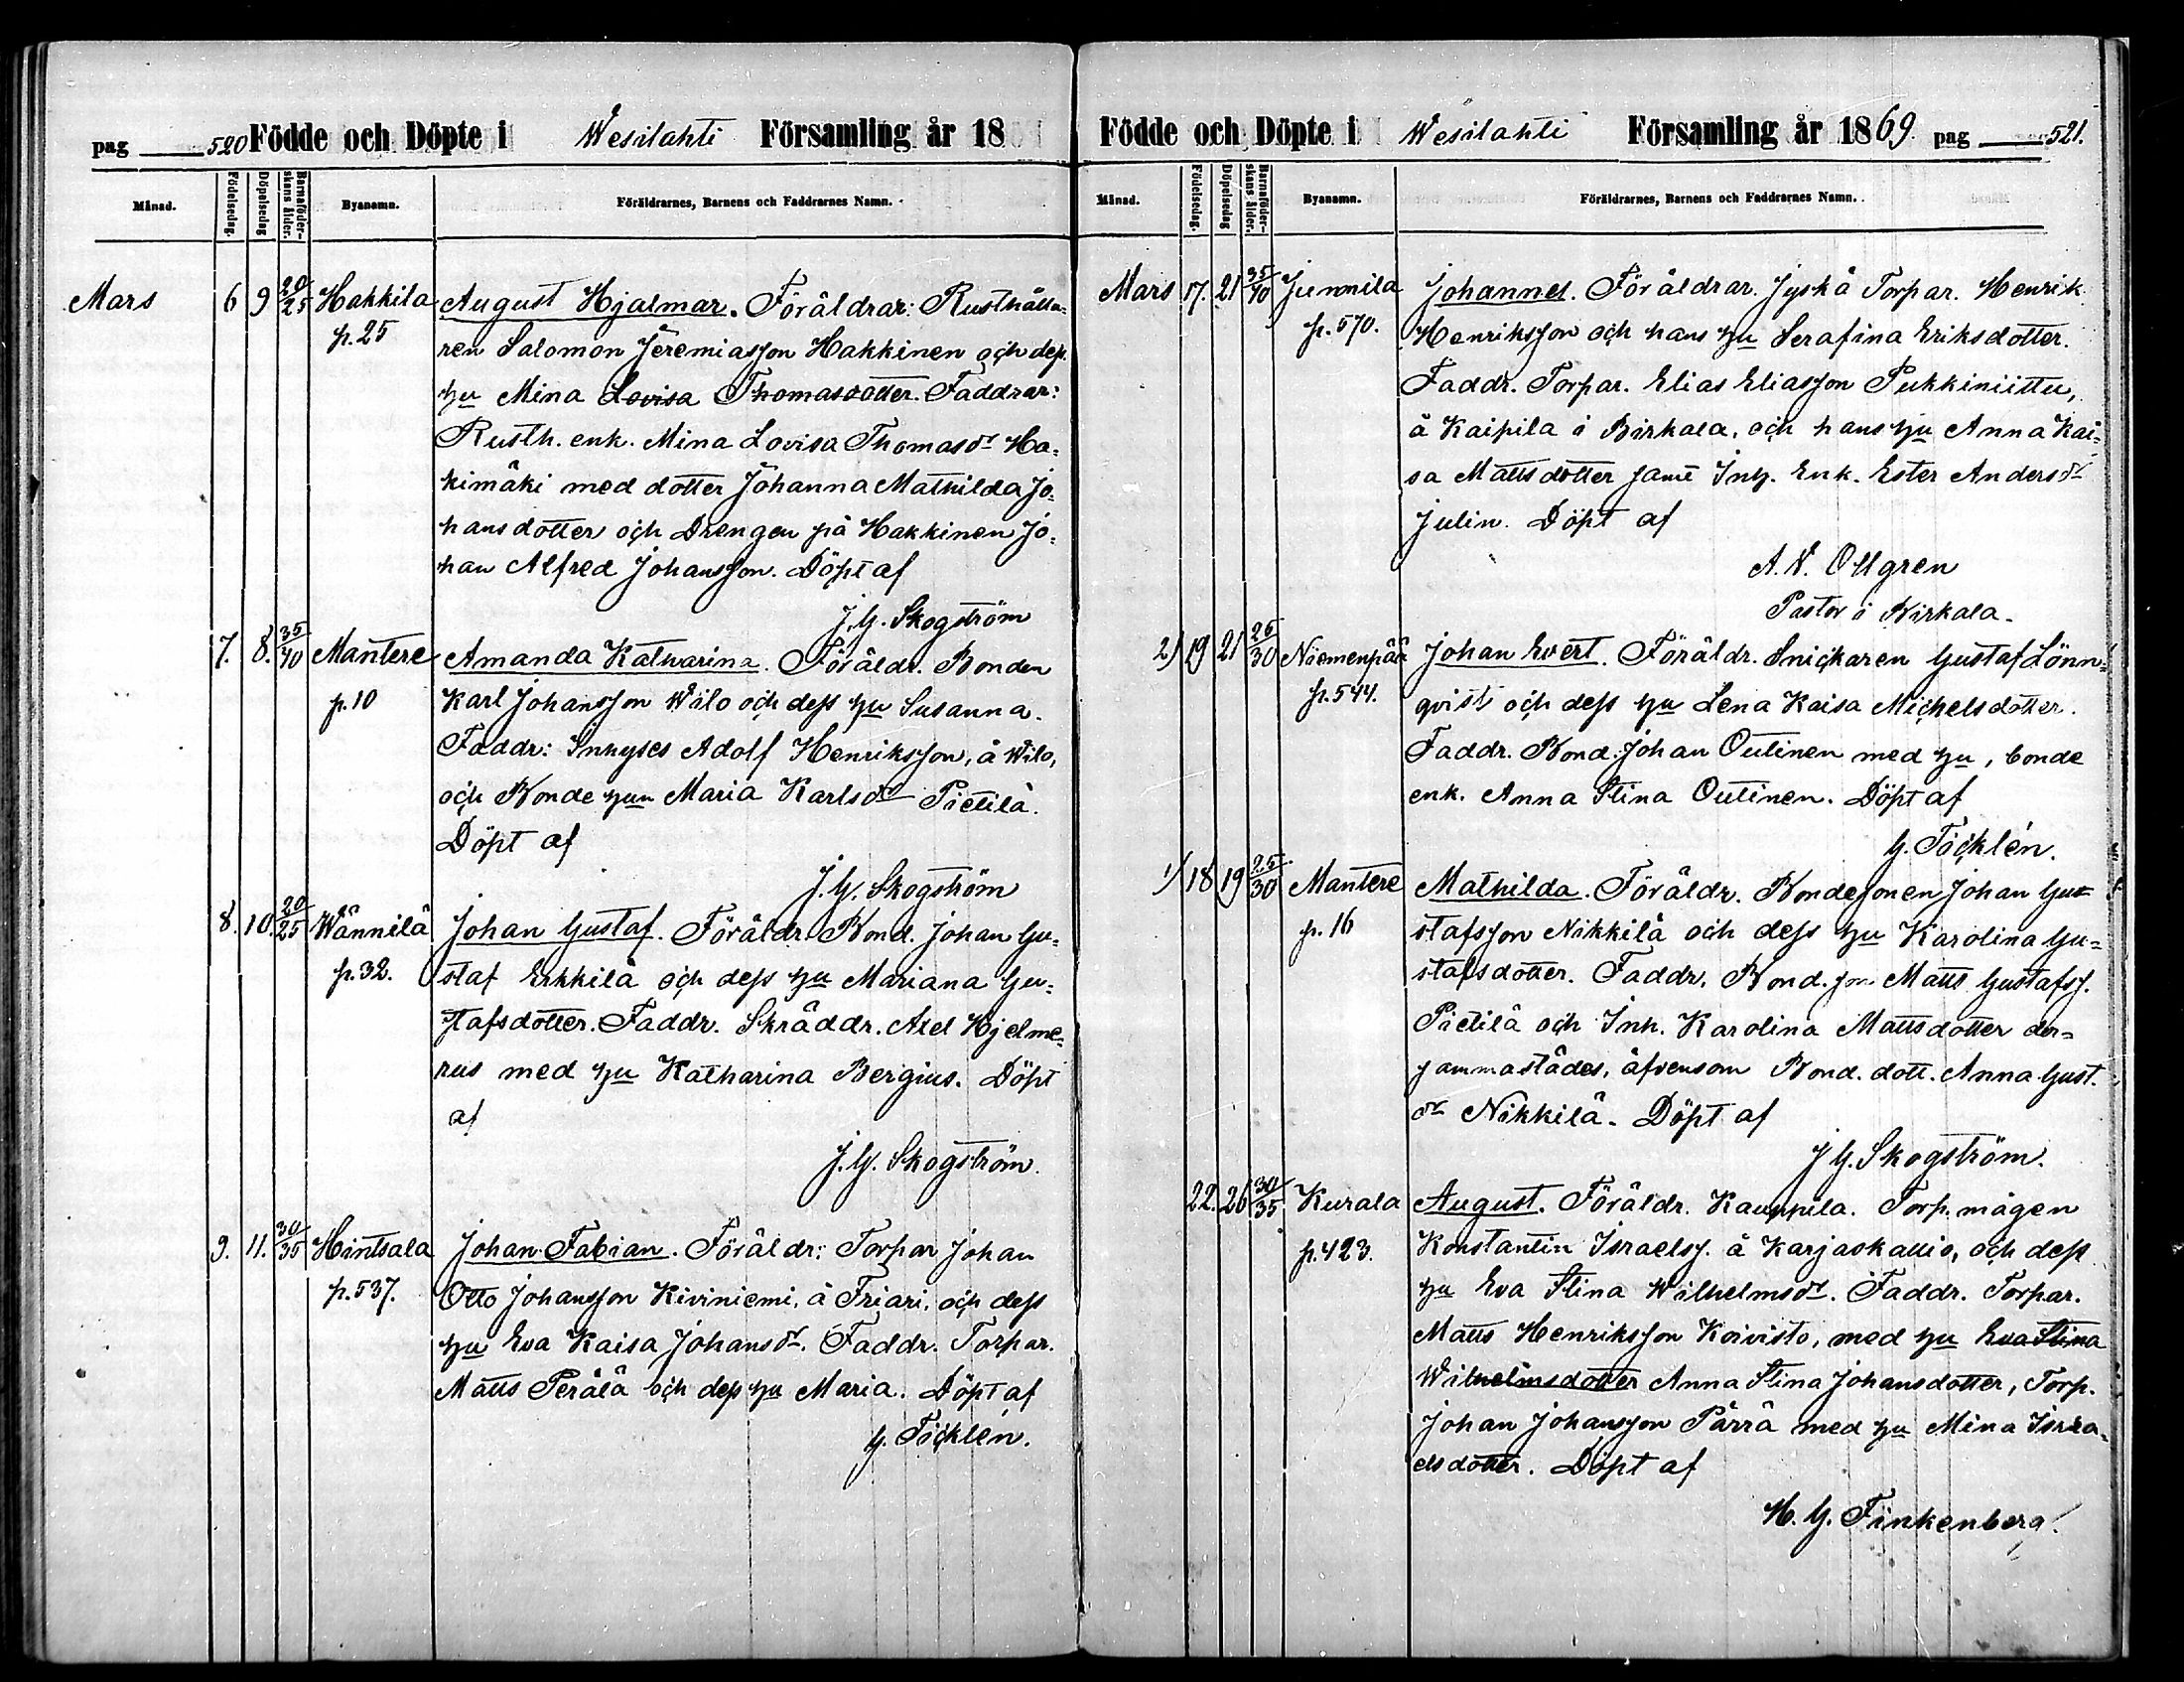 pag 520 Födde och Döpte i Wesilahti Församling år 18
Månad. Födelsedag. Döpelsedag Barnaföderskans ålder. Byanamn. Föräldrarnes, Barnens och Faddrarnes Namn.
Mars 6 9 20/25 Hakkila August Hjalmar. Föräldrar: Rusthålla=
p. 25 ren Salomon Jeremiasson Hakkinen och dess
hu Mina Lovisa Thomasdotter. Faddrar:
Rusth. enk. Mina Lovisa Thomasdr Ha=
kimäki med dotter Johanna Mathilda Jo=
hansdotter och Drengen på Hakkinen Jo=
han Alfred Johansson. Döpt af
J. G. Skogström
7. 8. 35/40 Mantere Amanda Katharina. Föräldr. Bonden
p. 10 Karl Johansson Wilo och dess hu Susanna.
Faddr: Inhyses Adolf Henriksson, å Wilo,
och Bonde hun Maria Karlsdr Pietilä.
Döpt af
J. G. Skogström
8. 10. 20/25 Wännilä Johan Gustaf. Föräldr. Bond. Johan Gu=
p. 32. staf Erkkilä och dess hu Mariana Gu=
stafsdotter. Faddr. Skräddr. Axel Hjelme=
rus med hu Katharina Bergius. Döpt
af
J. G. Skogström.
9. 11. 30/35 Hintsala Johan Fabian. Föräldr: Torpar Johan
p. 537. Otto Johansson Kiviniemi, å Friari, och dess
hu Eva Kaisa Johansdr. Faddr. Torpar.
Matts Perälä och dess hu Maria. Döpt af
G. Töcklén.
Födde och Döpte i Wesilahti Församling år 1869. pag 521.
Månad. Födelsedag. Döpelsedag Barnaföderskans ålder. Byanamn. Föräldrarnes, Barnens och Faddrarnes Namn.
Mars 17. 21 35/40 Junnila Johannes. Föräldrar. Jyskä Torpar. Henrik
p. 570. Henriksson och hans hu Serafina Eriksdotter.
Faddr. Torpar. Elias Eliasson Pukkiniittu,
å Kaipila i Birkala, och hans hu Anna Kai=
sa Mattsdotter samt Inh. Enk. Ester Andersdr
Julin. Döpt af
A. V. Ollgren
Pastor i Birkala.
2) 19 21 26/30 Niemenpää Johan Evert. Föräldr. Snickaren Gustaf Lönn=
p. 544. qvist och dess hu Lena Kaisa Michelsdotter.
Faddr. Bond. Johan Outinen med hu, bonde
enk. Anna Stina Outinen. Döpt af
G. Töcklén.
1) 18 19 25/30 Mantere Mathilda. Föräldr. Bondesonen Johan Gu=
p. 16 stafsson Nikkilä och dess hu Karolina Gu=
stafsdotter. Faddr. Bond. son Matts Gustafss.
Pietilä och Inh. Karolina Mattsdotter der=
sammastädes, äfvensom Bond. dott. Anna Gust.
dr Nikkilä. Döpt af
J G. Skogström.
22. 26 30/35 Kurala August. Föräldr. Kauppila. Torp. mågen
p. 423. Konstantin Israelss. å Karjaskallio, och dess
hu Eva Stina Wilhelmsdr. Faddr. Torpar.
Matts Henriksson Koivisto, med hu Eva Stina
Wilhelmsdotter Anna Stina Johansdotter, Torp.
Johan Johansson Pärrä med hu Mina Isra=
elsdotter. Döpt af
H. G. Finkenberg.